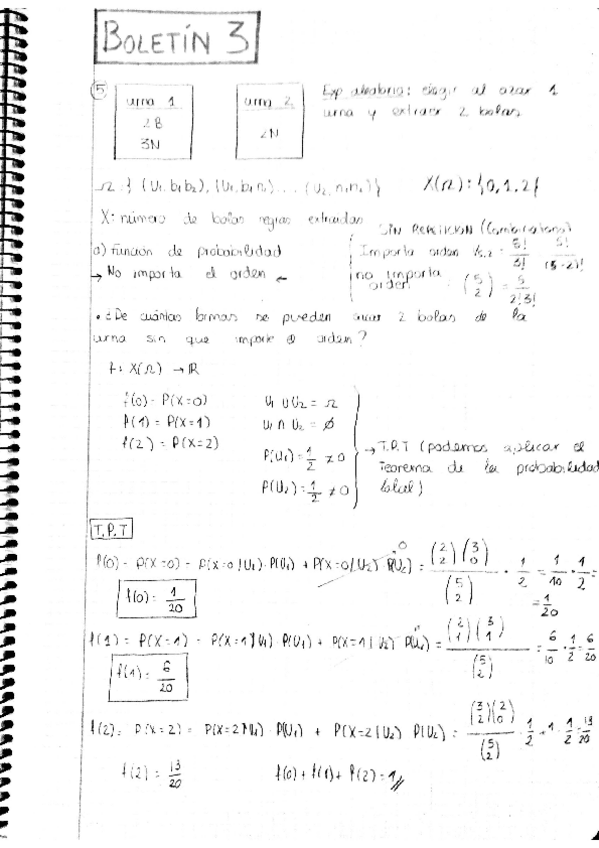 BOLETÍN 3
5
urna 1
2B
3N
urna 2
2N
Exp aleatorio: elegir al azar 1
urna y extraer 2 bolas
Ω: { (U₁, b₁ b₂), (U₁, b₁ n₁) ... (U₂, n₁ n₂) }
X(Ω): {0, 1, 2}
X: número de bolas negras extraidas
a) Función de probabilidad
→ No importa el orden ←
SIN REPETICION (Combinatoria)
Importa orden 5!/3! 5!/(5-2)!
no importa orden : (5 2) = 5/2!3!
• ¿De cuántas formas se pueden sacar 2 bolas de la
urna sin que importe el orden?
f: X(Ω) → ℝ
f(0) = P(X=0)
f(1) = P(X=1)
f(2) = P(X=2)
U₁ ∪ U₂ = Ω
U₁ ∩ U₂ = ∅
P(U₁) = 1/2 ≠ 0
P(U₂) = 1/2 ≠ 0
→ T.P.T (podemos aplicar el
Teorema de la probabilidad
total)
T.P.T
f(0) = P(X=0) = P(X=0|U₁)·P(U₁) + P(X=0|U₂)·P(U₂) 0 = (2 2)(3 0)/(5 2) · 1/2 = 1/10 · 1/2 = 1/20
f(0) = 1/20
f(1) = P(X=1) = P(X=1|U₁)·P(U₁) + P(X=1|U₂)·P(U₂) = (2 1)(3 1)/(5 2) = 6/10 · 1/2 = 6/20
f(1) = 6/20
f(2) = P(X=2) = P(X=2|U₁)·P(U₁) + P(X=2|U₂) P(U₂) = (3 2)(2 0)/(5 2) · 1/2 + 1 · 1/2 = 13/20
f(2) = 13/20
f(0) + f(1) + f(2) = 1